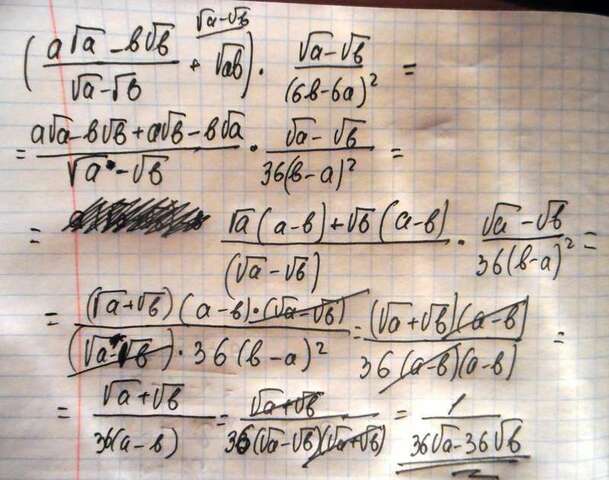 √a-√b
( (a√a - b√b)/(√a-√b) + √ab ) · (√a-√b)/(6b-6a)² =
= (a√a-b√b+a√b-b√a)/(√a-√b) · (√a-√b)/36(b-a)² =
= (√a(a-b)+√b(a-b))/(√a-√b) · (√a-√b)/36(b-a)² =
= (√a+√b)(a-b)·(√a-√b)/(√a-√b)·36(b-a)² = (√a+√b)(a-b)/36(a-b)(a-b) =
= (√a+√b)/36(a-b) = (√a+√b)/36(√a-√b)(√a+√b) = 1/(36√a-36√b)